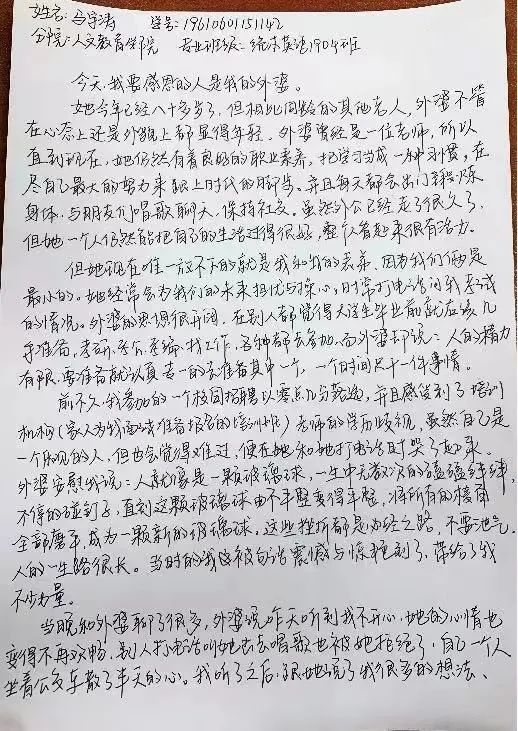 姓名: 马宇涛 学号: 19610601151142
分院: 人文教育学院 专业班级: 经济英语1904班
今天，我要感恩的人是我的外婆。
她今年已经八十多岁了，但相比同龄的其他老人，外婆不管
在心态上还是外貌上都显得年轻。外婆曾经是一位老师，所以
直到现在，她仍然有着良好的职业素养，把学习当成一种习惯，在
尽自己最大的努力来跟上时代的脚步。并且每天都会出门锻炼
身体，与朋友们唱歌聊天，保持社交。虽然外公已经走了很久了，
但她一个人仍然能把自己的生活过得很好，整个人看起来很有活力。
但她现在唯一放不下的就是我和我的表弟，因为我们俩是
最小的。她经常会为我们的未来担忧与操心，时常打电话问我考试
的情况。外婆的思想很开阔，在别人都觉得大学生毕业前就应该几
手准备，考研、考公、考编、找工作，各种都去参加，而外婆却说：人的精力
有限，要准备就认真专一的去准备其中一个，一个时间只干一件事情。
前不久，我参加的一个校园招聘以零点几分落选，并且感受到了培训
机构（家人为我面试准备报名的培训班）老师的学历歧视，虽然自己是
一个乐观的人，但也会觉得难过，便在她和她打电话时哭了起来。
外婆安慰我说：人就像是一颗玻璃球，一生中无数次的磕磕绊绊，
不停的碰钉子，直到这颗玻璃球由不平整变得平整，将所有的棱角
全部磨平，成为一颗新的玻璃球。这些挫折都是必经之路，不要泄气，
人的一生路很长。当时的我这被句话震撼与惊艳到了，带给了我
不少力量。
当晚和外婆聊了很多，外婆说昨天听到我不开心，她的心情也
变得不再欢畅，别人打电话叫她出去唱歌也被她拒绝了，自己一个人
坐着公交车散了半天的心。我听了之后，跟她说了我很多的想法、